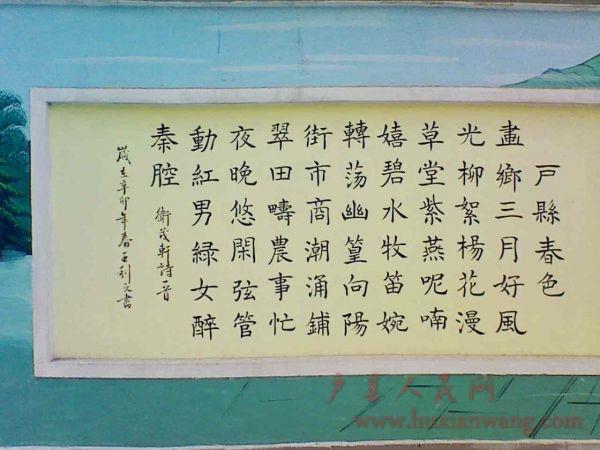 戶縣春色
畫鄉三月好風
光柳絮楊花漫
草堂紫燕呢喃
嬉碧水牧笛婉
轉蕩幽篁向陽
街市商潮涌鋪
翠田疇農事忙
夜晚悠閑弦管
動紅男綠女醉
秦腔
衛茂軒詩一首
歲在辛卯年春王利書
户县人民网
www.huxianwang.com